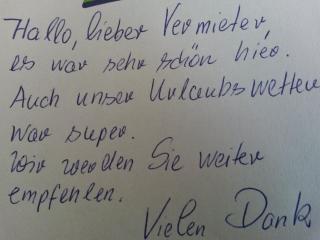 Hallo, lieber Vermieter,
es war sehr schön hier.
Auch unser Urlaubswetter
war super.
Wir werden Sie weiter
empfehlen.
Vielen Dank